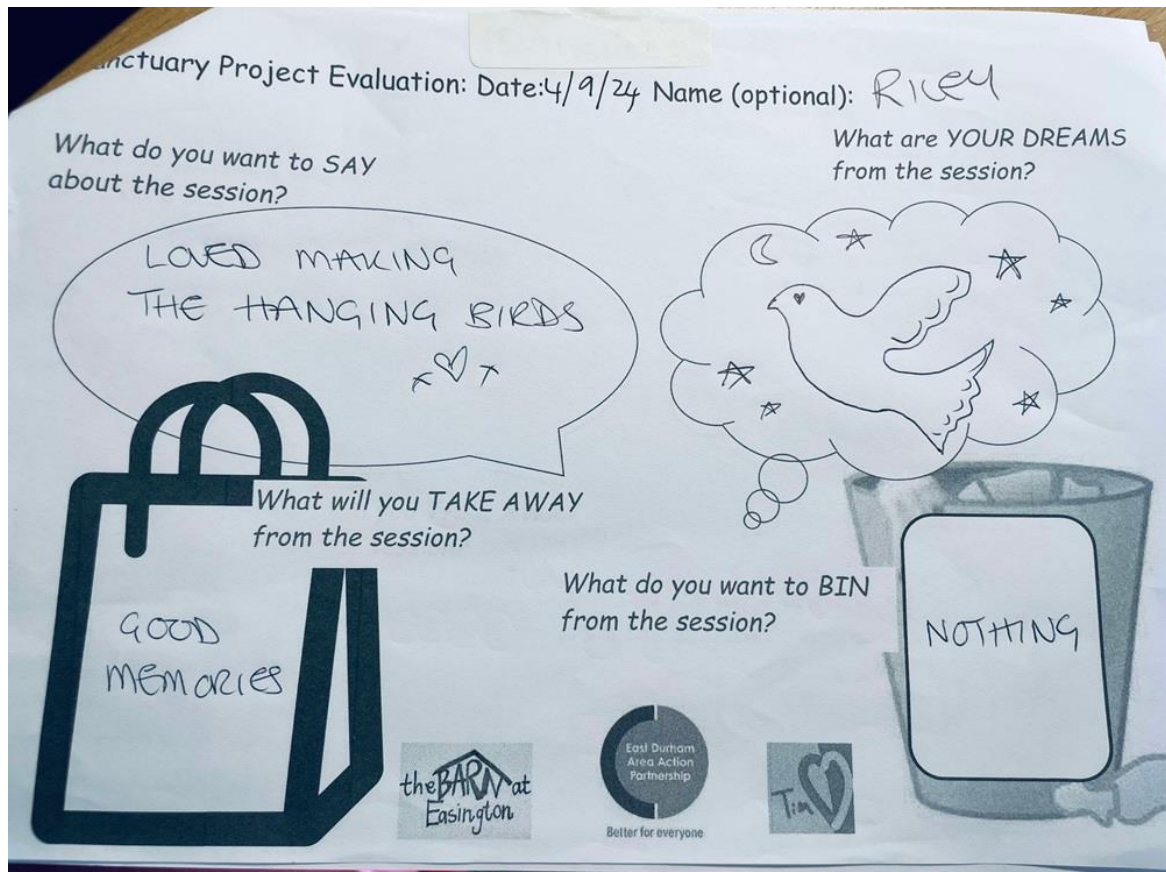 nctuary Project Evaluation: Date:4/9/24 Name (optional): Riley
What do you want to SAY
about the session?
LOVED MAKING
THE HANGING BIRDS
What are YOUR DREAMS
from the session?
What will you TAKE AWAY
from the session?
GOOD
MEMORIES
What do you want to BIN
from the session?
NOTHING
the BARN at
Easington
East Durham
Area Action
Partnership
Better for everyone
Tim